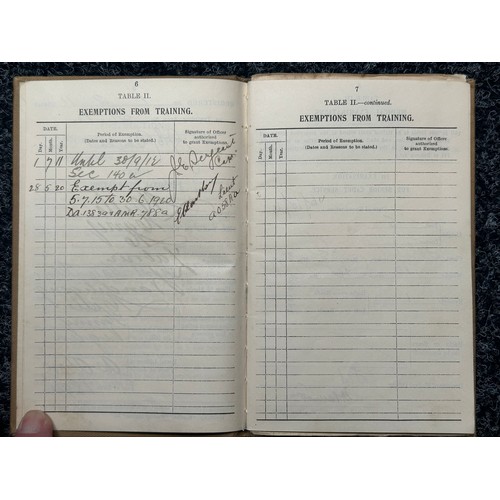 6
TABLE II.
EXEMPTIONS FROM TRAINING.
DATE.
Day. Month. Year.
Period of Exemption.
(Dates and Reasons to be stated.)
Signature of Officer
authorized
to grant Exemptions.
1 7 11 Until 30/9/12
Sec 140
28 5 20 Exempt from
5.7.15 to 30.6.1920
Lieut
7
TABLE II.—continued.
EXEMPTIONS FROM TRAINING.
DATE.
Day. Month. Year.
Period of Exemption.
(Dates and Reasons to be stated.)
Signature of Officer
authorized
to grant Exemptions.